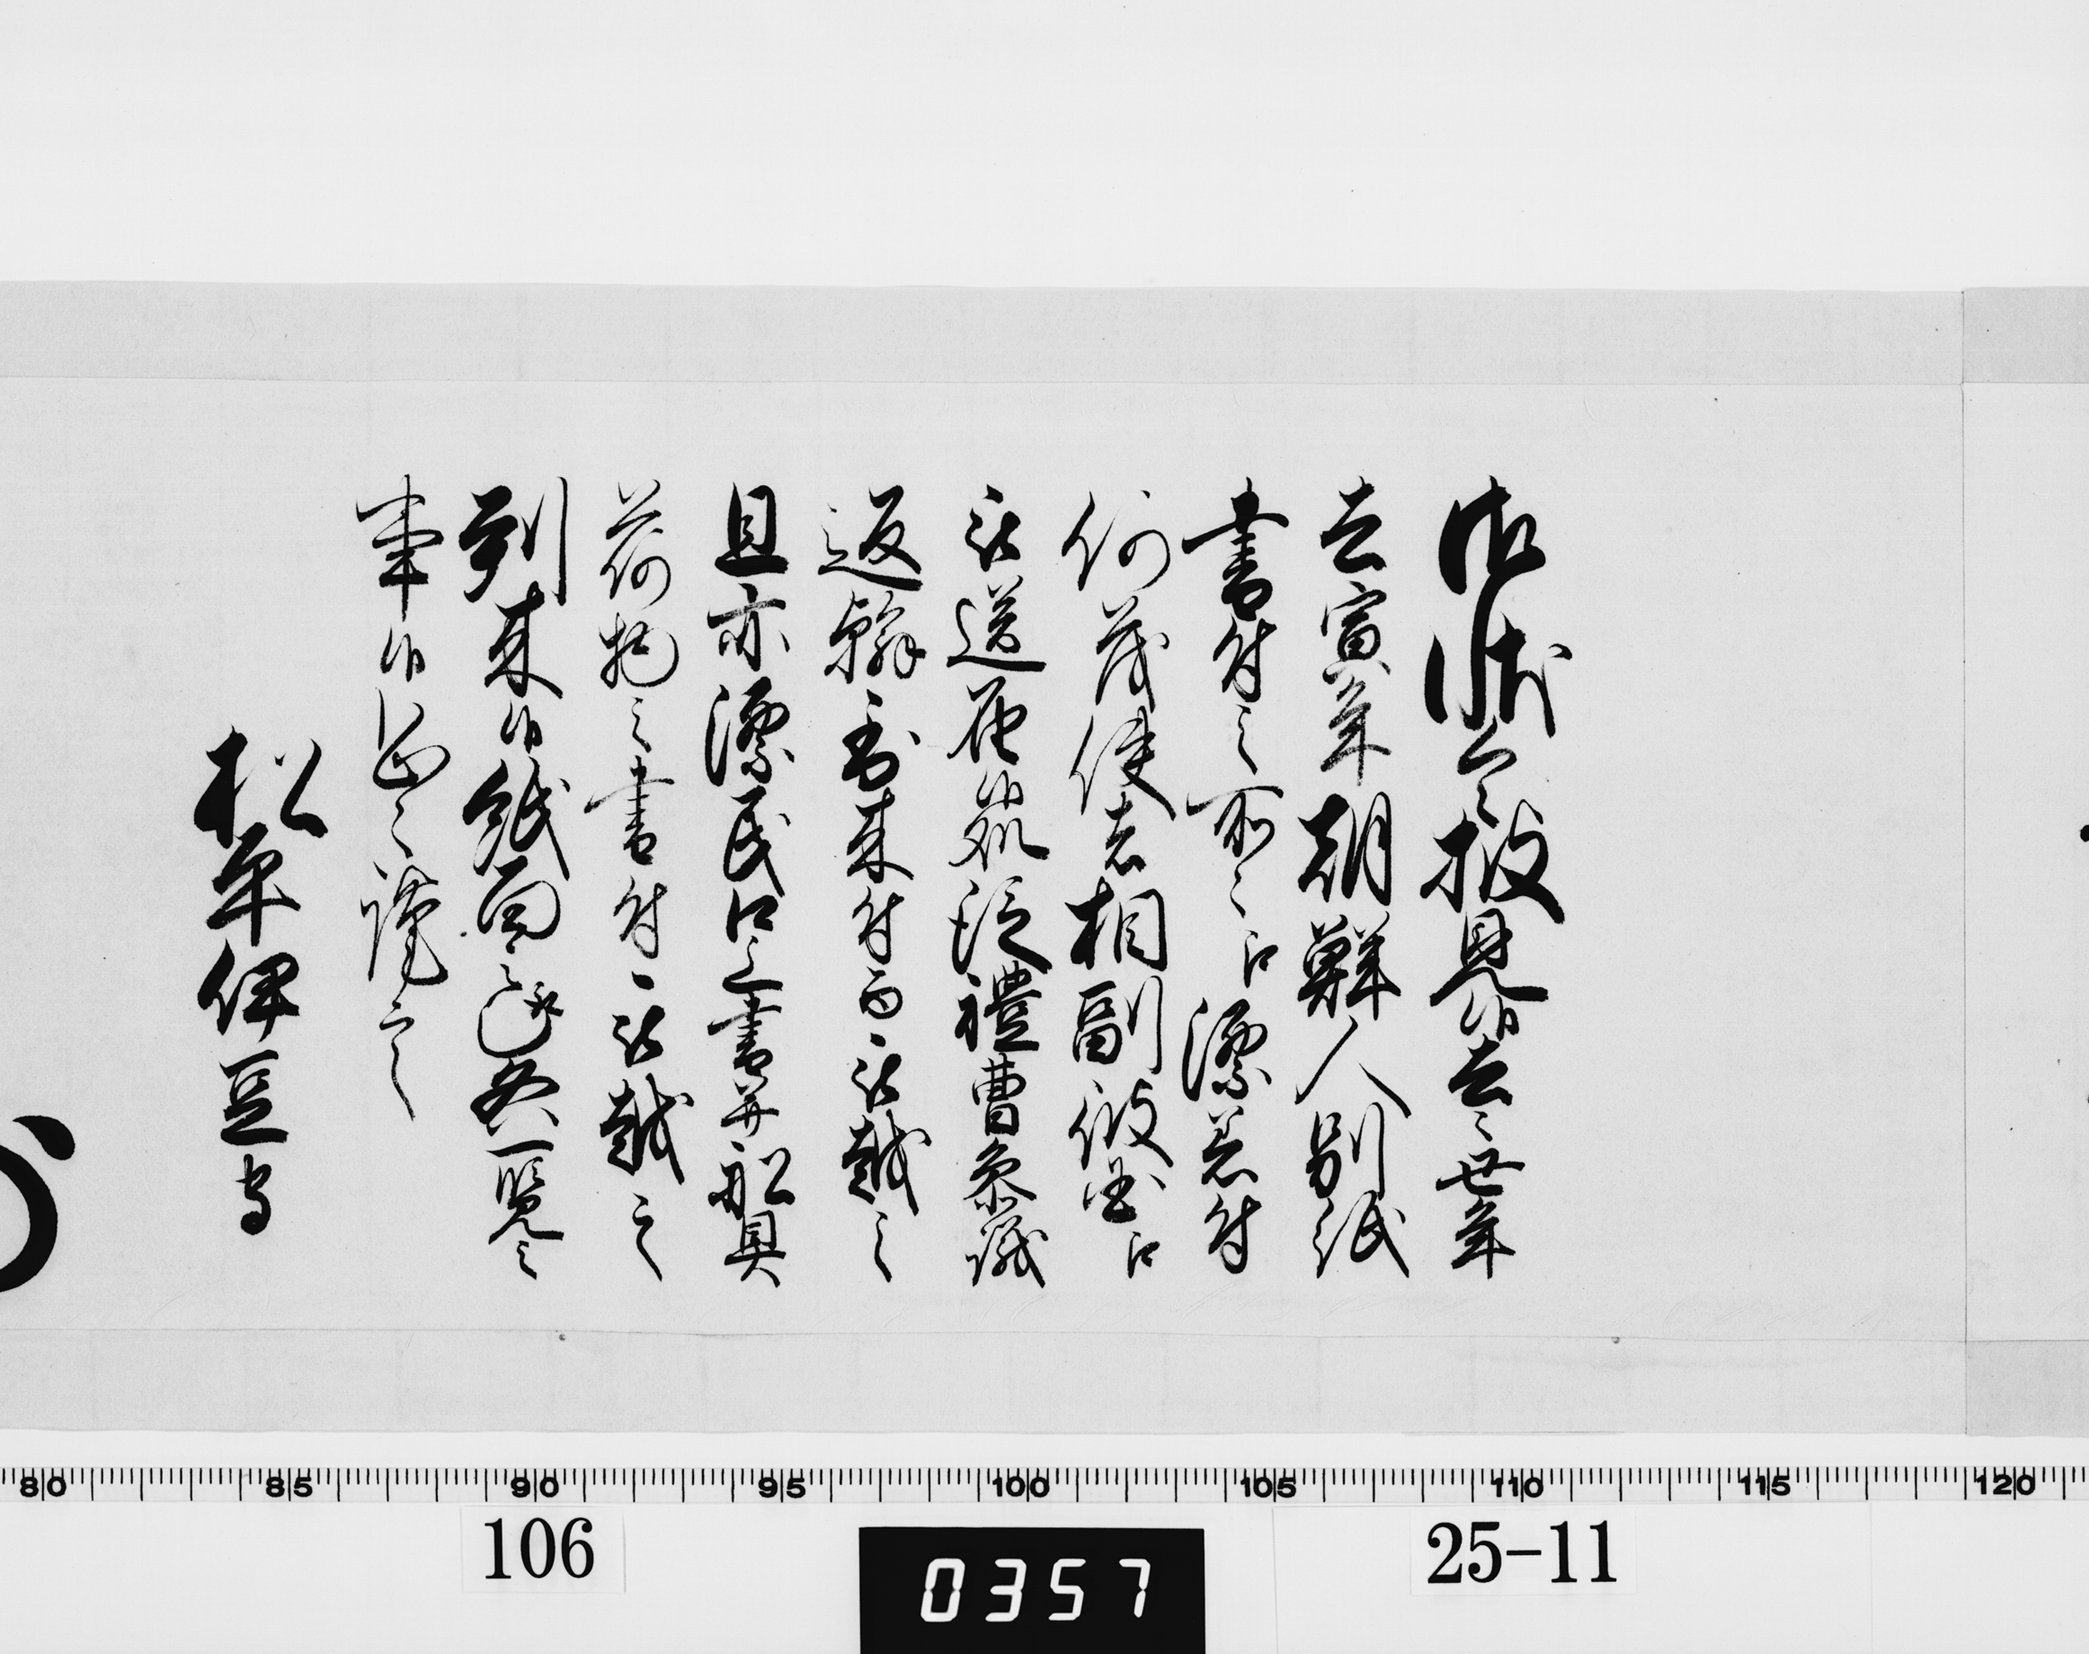 御状令披見候去々世年
去寅年朝鮮人別紙
書付之前之口漂着付
何茂使者相副彼国江
被送
礼曹参議
返翰到来付而被越之
且亦漂民口上書并船具
荷物之書付被越之
到来候紙面之趣各一覧之
事候恐々謹言
松平伊豆守
80 85 90 95 100 105 110 115 120
106
0357
25-11